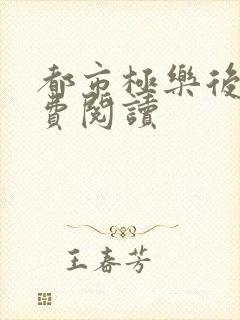 都市極樂後
費閱讀
王春芳